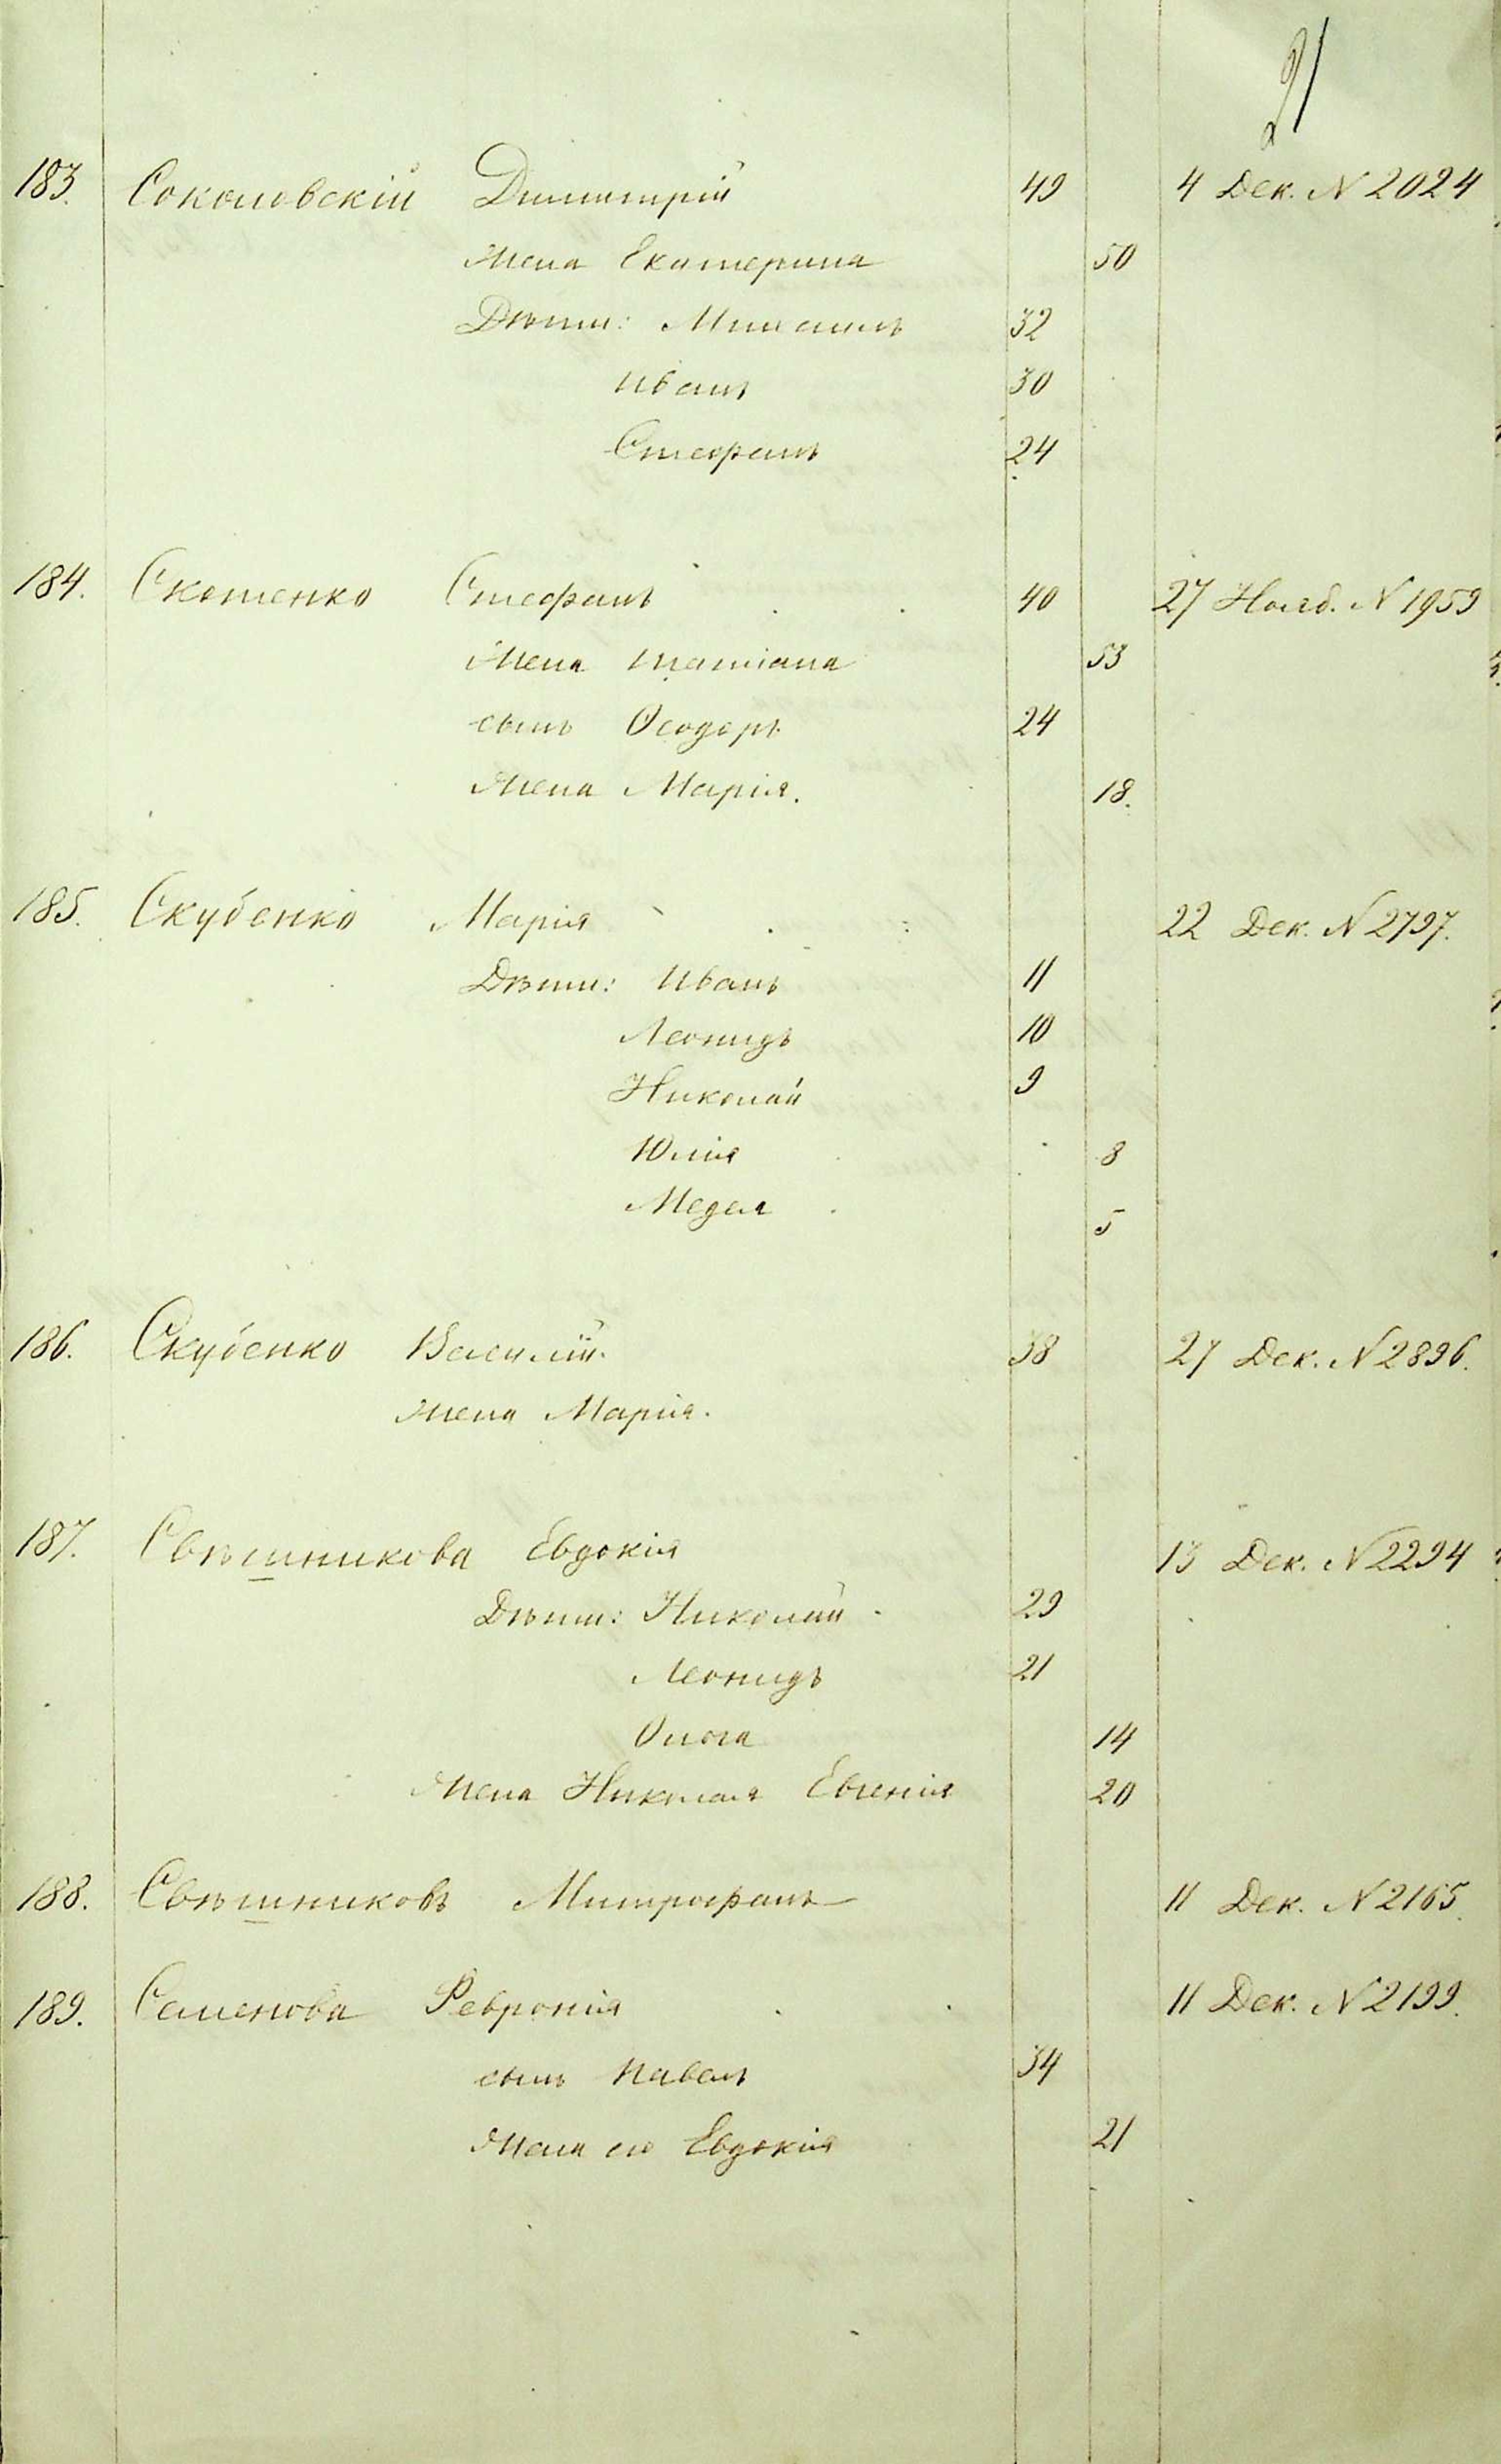 21
183. Соколовскій Димитрій 49 4 Дек. N 2024
Жена Екатерина 50
Дѣти: Михаилъ 32
Иванъ 30
Стефанъ 24
184. Стефанъ 40 27 Нояб. N 1959
Жена Татіана 53
сынъ Ѳеодоръ 24
Жена Марія. 18.
185. Скубенко Марія 22 Дек. N 2797.
Дѣти: Иванъ 11
Леонидъ 10
Николай 9
Юлія 8
5
186. Скубенко Василій. 38 27 Дек. N 2896.
жена Марія.
187. Свѣшникова Евдокія 13 Дек. N 2294
Дѣти: Николай 29
Леонидъ 21
Ольга 14
Жена Николая Евгенія 20
188. Свѣшниковъ Митрофанъ 11 Дек. N 2165.
189. Семенова Февронія 11 Дек. N 2199.
сынъ Павелъ 34
Жена его Евдокія 21